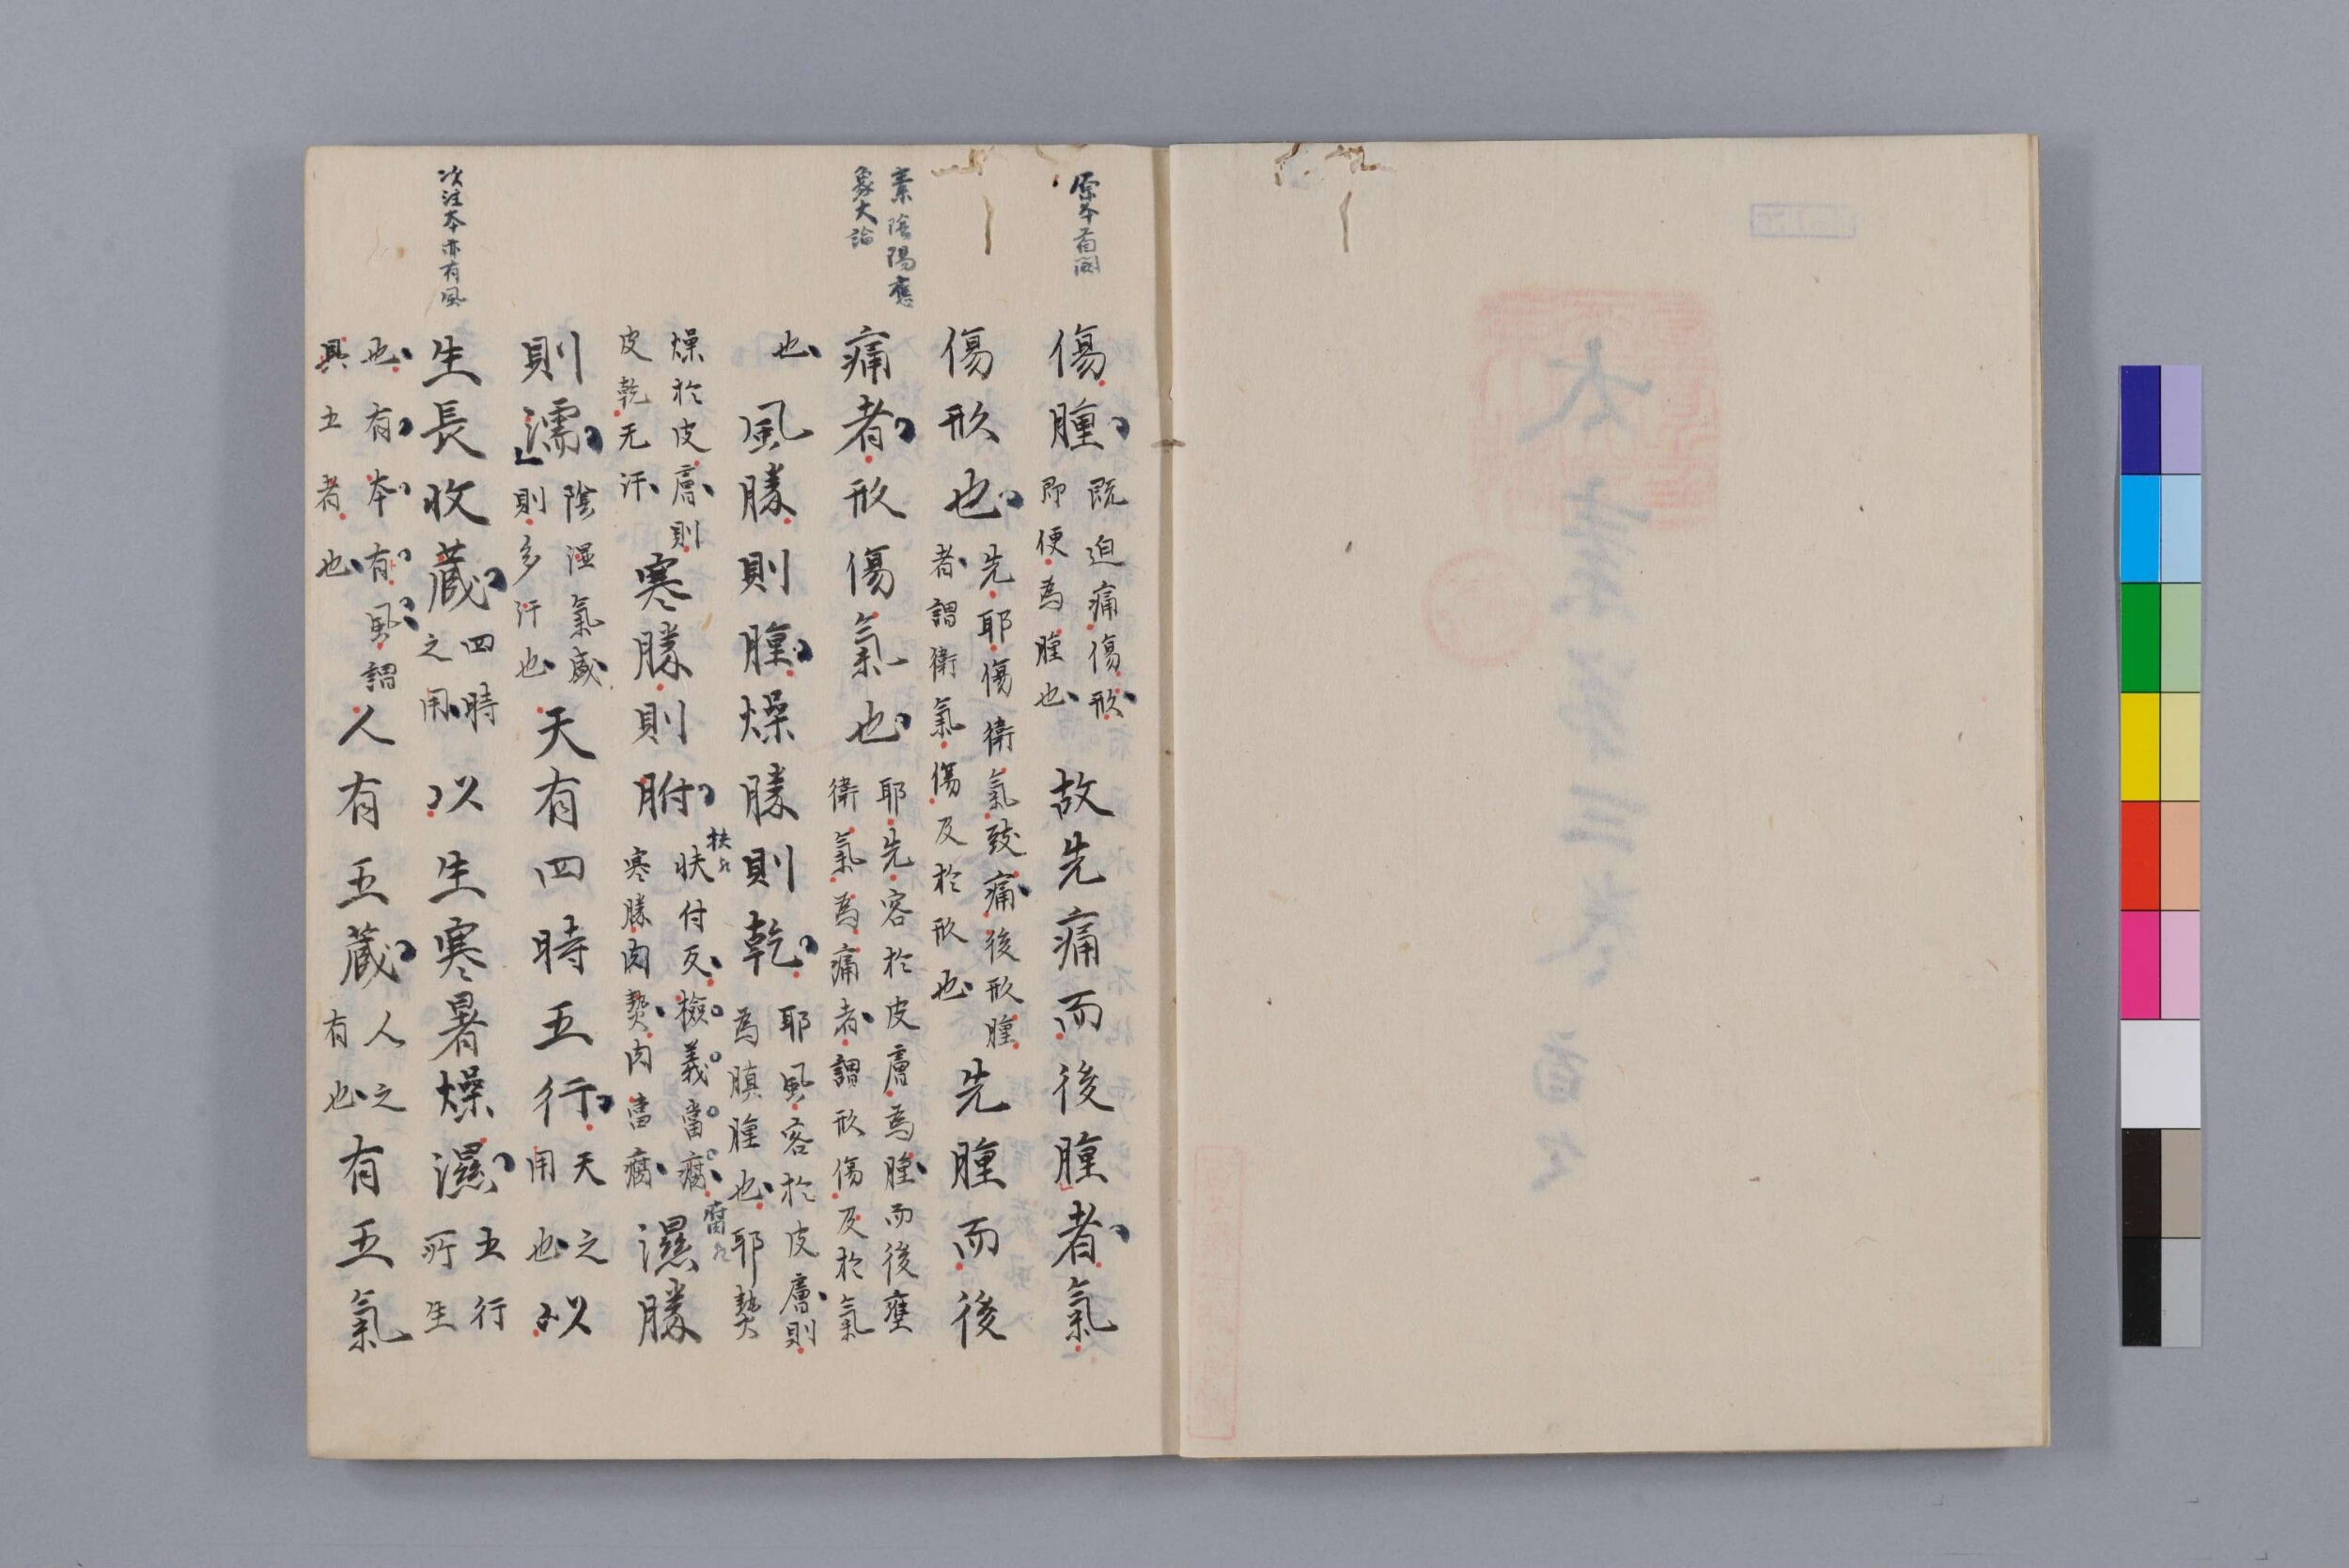 原本首闕
傷腫既迫痛傷形
即便為腫也故先痛而後腫者氣
傷形也先耶傷衛氣致痛後形腫
者謂衛氣傷及於形也先腫而後
素陰陽應
象大論
痛者形傷氣也耶先客於皮膚為腫而後壅
衛氣為痛者謂形傷及於氣
也風勝則腫燥勝則乾耶風客於皮膚則
為䐜腫也耶熱
燥於皮膚則
皮乾无汗寒勝則胕扶付反檢義當腐
寒勝肉熱肉當腐濕勝
則濡陰濕氣盛
則多汗也天有四時五行天之
用也以
次注本亦有風
生長收藏四時
之用以生寒暑燥濕五行
所生
也有本有風謂
具五者也人有五藏人之
有也有五氣
太素第三卷首欠